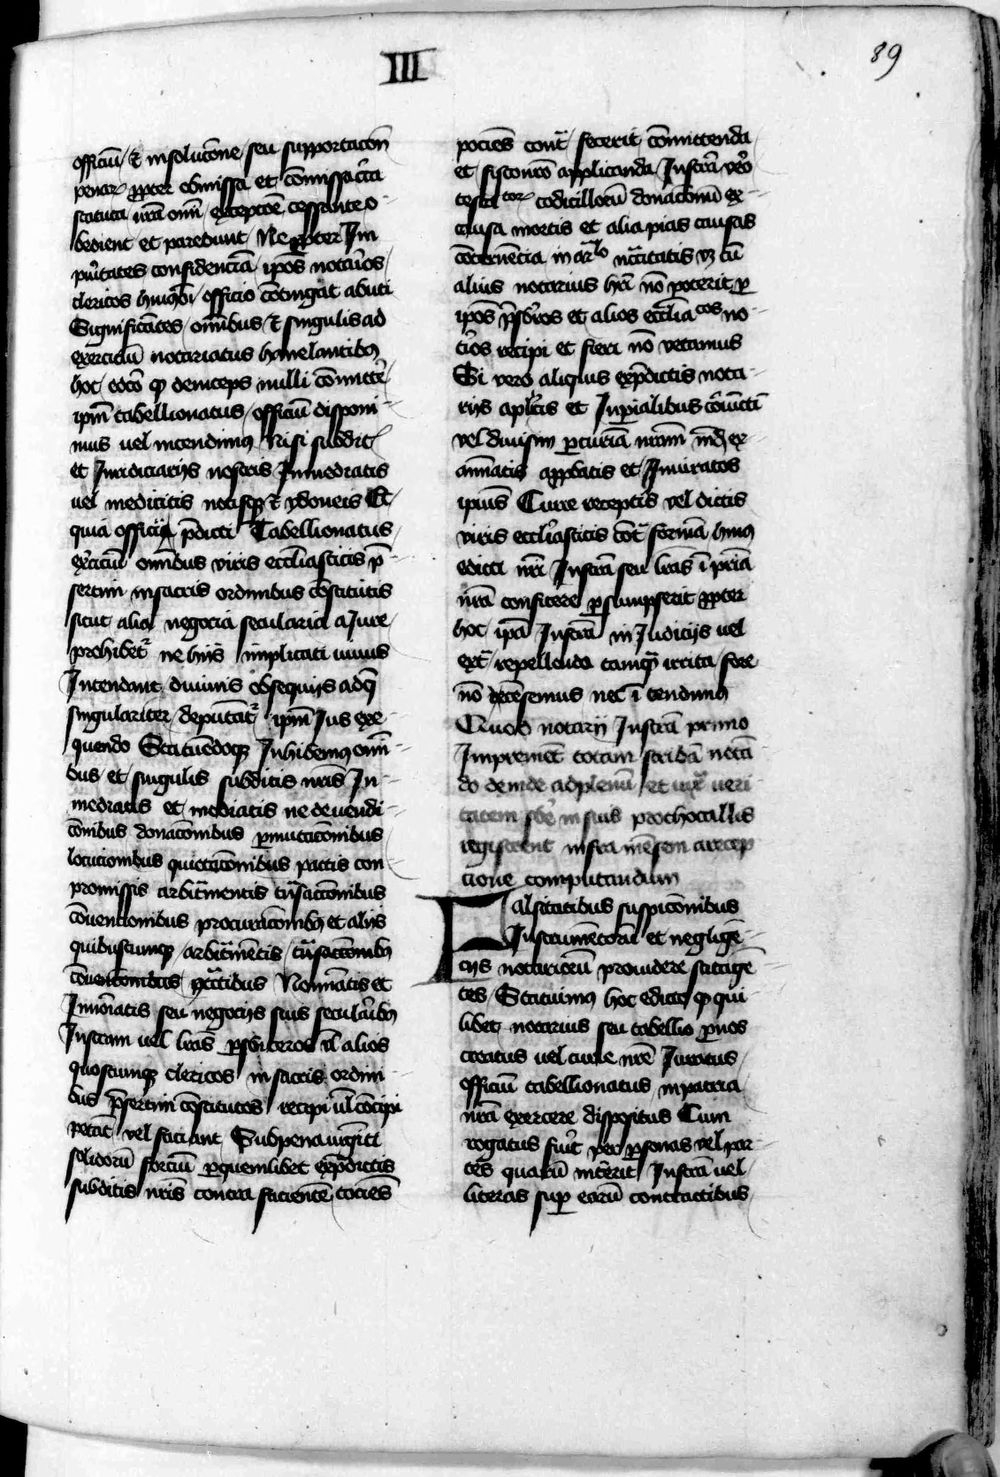 III
89
officiū / et in solucōne / seu supportacōn
penar̄ propter obmissa et cōmissa cīra
statuta nr̄a om̄i exceptōe cessante o-
bedient et parebunt / Ne propter Im
pūitates confidenciā ipōs notarios /
clericos hmōi officio cōtingat abuti
Significātes / om̄ibus / et singulis ad
exerciciū notariatus hanelantibus
hoc / edcō quod deinceps nulli cōmitter̄ /
ipm̄ tabellionatus / officiū disponi-
mus vel intendimus Nisi subdit̄
et Iuridiciarijs nostris Inmediatis
uel mediatis notisque et ydoneis Et
quia officij p̄dicti Tabellionatus
exerciciū om̄ibus viris ecclīasticis p̄-
sertim in sacris ordinibus cōstitutis
sicut alia negocia secularia a Iure /
prohibet̄ ne hijs implicati minus
Intendant diuinis obsequijs ad que
singulariter / deputāt̄ ipm̄ Ius exe-
quendo Statuēdoque Inhibemus om̄i-
bus et singulis subditis nr̄is In-
mediatis et mediatis ne de vendi-
cōnibus donacōnibus permutacōnibus /
locationibus quietacōnibus pactis con-
promissis arbitramentis trāsactionibus
cōuencionibus procuracōnibus et alijs
quibuscumque arbitramētis / trāsactōnibus
cōuencōnibus / Nominatis et
Innōiatis seu negocijs suis secularibus
Instrum̄ vel lrās presbiteros ul̄ alios
quoscumque clericos in sacris ordini-
bus p̄sertim cōstitutos recipi ul̄ cōcipi
petāt vel faciant Sub pena viginti
solidorū fortiū per quemlibet ex p̄dictis
subditis nr̄is contra facientē / tociēs
pociēs cont̄ / fecerit / cōmittenda
et fisco nr̄o applicanda Instr̄a vero
testatorum codicillorū donacōnū ex
causa mortis et alia pias causas
cōcernencia in articulo necītatis vbi cū
alius notarius hr̄i nō poterit per
ipōs prsbr̄os et alios ecclīasticos no-
tios recipi et fieri nō vetamus
Si vero aliquis ex p̄dictis nota-
rijs aplīcis et Inp̄ialibus cōiūctī
vel diuisim per curiā nr̄am m̄d ex
aminatis approbatis et Iniuratos
ipius Curie receptis vel dictis
viris ecclīasticis cont̄ formā huius
edicti nr̄i Instr̄a seu lrās ī priā
nr̄a conficere presumpserit propter
hoc ipā Instr̄a in Iudicijs uel
extra / repellenda tamquam irrita / fore
nō decēsemus nec ī tendimus
Quod notarij Instr̄a primo
Impremēt coram scribā notā-
do deinde ad plenū / et iuxta veri-
tatem fcī in suis prothocallis
registrent infra mēsem a recep
cione computandum
Falsitatibus suspicōnibus
Instrumētorū et negligē-
cijs notariorū prouidere satagē-
tes / Statuimus hoc edicto quod qui
libet notarius seu tabellio per nos
creatus vel curie nr̄e Iuratus /
officiū tabellionatus in patria
nr̄a exercere dispositus Cum
rogatus fuerit per personas vel par-
tes quarū interit / Instr̄a vel
literas super earū contractibus